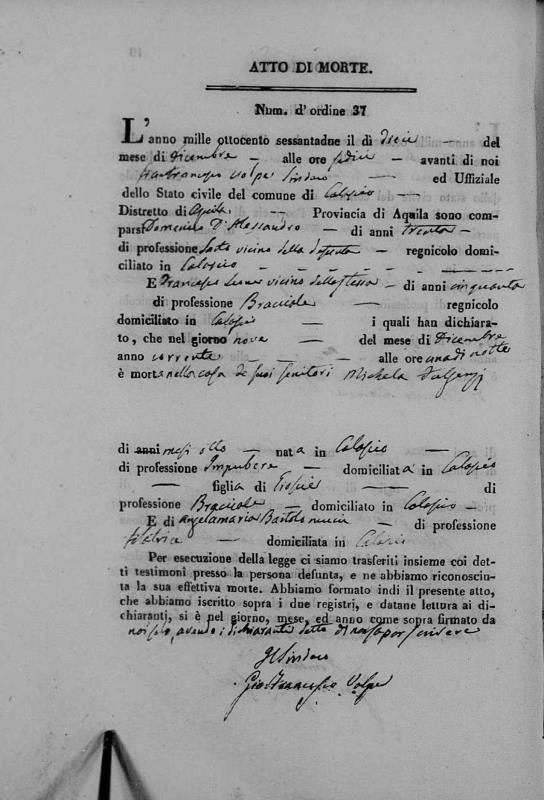 ATTO DI MORTE.
Num. d'ordine 37
L'anno mille ottocento sessantadue il dì dieci — del
mese di Dicembre — alle ore sedici — avanti di noi
Volpe Sindaco — ed Uffiziale
dello Stato civile del comune di Calascio —
Distretto di Aquila — Provincia di Aquila sono com-
parsi Domenico D'Alessandro — di anni trenta —
di professione vicino della defunta — regnicolo domi-
ciliato in Calascio
E Francesco vicino della stessa — di anni cinquanta
di professione Bracciale — regnicolo
domiciliato in Calascio — i quali han dichiara-
to, che nel giorno nove — del mese di Dicembre
anno corrente — alle ore una di notte
è morta nella casa de' suoi genitori Michela Fulgenzj
di anni mesi otto — nata in Calascio —
di professione Impubere — domiciliata in Calascio
— figlia di — di
professione Bracciale — domiciliato in Calascio —
E di Angelamaria — di professione
Filatrice — domiciliata in Calascio
Per esecuzione della legge ci siamo trasferiti insieme coi det-
ti testimonî presso la persona defunta, e ne abbiamo riconosciu-
ta la sua effettiva morte. Abbiamo formato indi il presente atto,
che abbiamo iscritto sopra i due registri, e datane lettura ai di-
chiaranti, si è nel giorno, mese, ed anno come sopra firmato da
noi solo, avendo i dichiaranti detto di non saper scrivere
Il Sindaco
Volpe